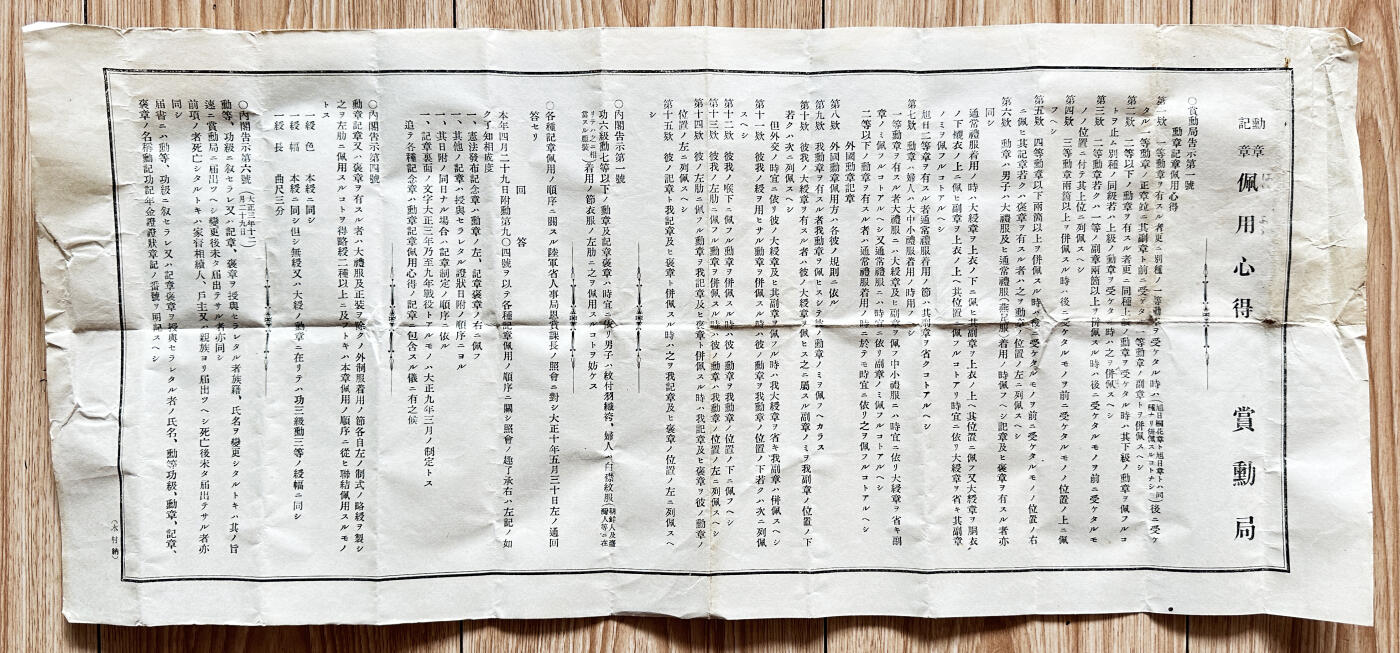 勳章
記章
佩用心得
賞勳局
○賞勳局告示第一號
勳章記章佩用心得
第一欵 一等勳章ヲ有スル者更ニ別種ノ一等勳章ヲ受ケタル時ハ(旭日桐花章ト旭日章トハ同種ナリ併佩スルコトナシ)後ニ受ケ
タル一等勳章ノ正章竝ニ其副章ト前ニ受ケタル一等勳章ノ副章トヲ併佩スヘシ
第二欵 二等以下ノ勳章ヲ有スル者更ニ同種上級ノ勳章ヲ受ケタル時ハ其下級ノ勳章ヲ佩フルコ
トヲ止ム別種ノ同級若クハ上級ノ勳章ヲ受ケタル時ハ之ヲ併佩スヘシ
第三欵 二等勳章若クハ一等ノ副章兩箇以上ヲ併佩スル時ハ後ニ受ケタルモノヲ前ニ受ケタルモ
ノノ位置ニ付テ其上位ニ列佩スヘシ
第四欵 三等勳章兩箇以上ヲ併佩スル時ハ後ニ受ケタルモノヲ前ニ受ケタルモノノ位置ノ上ニ佩
フヘシ
第五欵 四等勳章以下兩箇以上ヲ併佩スル時ハ後ニ受ケタルモノヲ前ニ受ケタルモノノ位置ノ右
ニ佩ヒ其記章若クハ褒章ヲ有スル者ハ之ヲ勳章ノ位置ノ左ニ列佩スヘシ
第六欵 勳章ハ男子ハ大禮服及ヒ通常禮服(燕尾服)着用ノ時佩フヘシ記章及ヒ褒章ヲ有スル者亦
同シ
通常禮服着用ノ時ハ大綬章ヲ上衣ノ下ニ佩ヒ其副章ヲ上衣ノ上ヘ其位置ニ佩フ又大綬章ヲ胴衣
ノ下襯衣ノ上ニ佩ヒ副章ヲ上衣ノ上ヘ其位置ニ佩フルコトアリ時宜ニ依リ大綬章ヲ省キ其副章
ノミヲ佩フルコトアルヘシ
旭日二等章ヲ有スル者通常禮服着用ノ節ハ其副章ヲ省クコトアルヘシ
第七欵 勳章ハ婦人ハ大中小禮服着用ノ時用フヘシ
一等勳章ヲ有スル者大禮服ニハ大綬章及ヒ副章ヲ佩フ中小禮服ニハ時宜ニ依リ大綬章ヲ省キ副
章ノミ佩フルコトアルヘシ又通常禮服ニハ時宜ニ依リ副章ノミ佩フルコトアルヘシ
二等以下ノ勳章ヲ有スル者ハ通常禮服着用ノ時ニ於テモ時宜ニ依リ之ヲ佩フルコトアルヘシ
外國勳章記章
第八欵 外國勳章佩用方ハ各彼ノ規則ニ依ル
第九欵 我勳章ヲ有スル者我勳章ヲ佩ヒスシテ彼ノ勳章ノミヲ佩フヘカラス
第十欵 彼我ノ大綬章ヲ有スル者ハ彼ノ大綬章ヲ佩ヒス之ニ屬スル副章ノミヲ我副章ノ位置ノ下
若クハ次ニ列佩スヘシ
但外交ノ時宜ニ依リ彼ノ大綬章及ヒ其副章ヲ佩フル時ハ我大綬章ヲ省キ我副章ハ併佩スヘシ
第十一欵 彼我ノ綬ヲ用ヒサル勳章ヲ併佩スル時ハ彼ノ勳章ヲ我勳章ノ位置ノ下若クハ次ニ列佩
スヘシ
第十二欵 彼我ノ喉下ニ佩フル勳章ヲ併佩スル時ハ彼ノ勳章ヲ我勳章ノ位置ノ下ニ佩フヘシ
第十三欵 彼我ノ左肋ニ佩フル勳章ヲ併佩スル時ハ彼ノ勳章ハ我勳章ノ位置ノ左ニ列佩スヘシ
第十四欵 彼ノ左肋ニ佩フル勳章ヲ我記章及ヒ褒章ト併佩スル時ハ我記章及ヒ褒章ヲ彼ノ勳章ノ
位置ノ左ニ列佩スヘシ
第十五欵 彼ノ記章ト我記章及ヒ褒章ト併佩スル時ハ之ヲ我記章及ヒ褒章ノ位置ノ左ニ列佩スヘ
シ
○內閣告示第一號
功六級勳七等以下ノ勳章及記章褒章ハ時宜ニ依リ男子ハ紋付羽織袴、婦人ハ白襟紋服(朝鮮人及臺灣人等ニ在リテハ之ニ相當スル服裝)着用ノ節衣服ノ左肋ニ之ヲ佩用スルコトヲ妨ケス
○各種記章佩用ノ順序ニ關スル陸軍省人事局恩賞課長ノ照會ニ對シ大正十年五月三十日左ノ通回
答セリ
回答
本年四月二十九日附勳第九〇四號ヲ以テ各種記章佩用ノ順序ニ關シ照會ノ趣了承右ハ左記ノ如
ク了知相成度
一、憲法發布記念章ハ勳章ノ左、記章褒章ノ右ニ佩フ
一、其他ノ記章ハ授與セラレタル證狀日附ノ順序ニヨル
一、其日附ノ同日ナル場合ハ記章制定ノ順序ニ依ル
一、記章裏面ノ文字大正三年乃至九年戰役トアルモノハ大正九年三月ノ制定トス
追テ各種記念章ハ勳章記章佩用心得ノ記章ニ包含スル儀ニ有之候
○內閣告示第四號
勳章記章又ハ褒章ヲ有スル者ハ大禮服及正裝ヲ除クノ外制服着用ノ節各自左ノ制式ノ略綬ヲ製シ
之ヲ左肋ニ佩用スルコトヲ得略綬二種以上ニ及フトキハ本章佩用ノ順序ニ從ヒ聯結佩用スルモノ
トス
一綬 色 本綬ニ同シ
一綬 幅 本綬ニ同シ但シ無綬又ハ大綬ノ勳章ニ在リテハ功三級勳三等ノ綬幅ニ同シ
一綬 長 曲尺三分
○內閣告示第六號(大正三年十二月二十六日)
勳等、功級ニ敍セラレ又ハ記章、褒章ヲ授與セラレタル者族籍、氏名ヲ變更シタルトキハ其ノ旨
速ニ賞勳局ニ届出ツヘシ變更後未タ届出テサル者亦同シ
前項ノ者死亡シタルトキハ家督相續人、戶主又ハ親族ヨリ届出ツヘシ死亡後未タ届出テサル者亦
同シ
届書ニハ勳等、功級ニ敍セラレ又ハ記章褒章ヲ授與セラレタル者ノ氏名、勳等功級、勳章、記章、
褒章ノ名稱勳記功記年金證書證狀章記ノ番號ヲ明記スヘシ
(木村納)